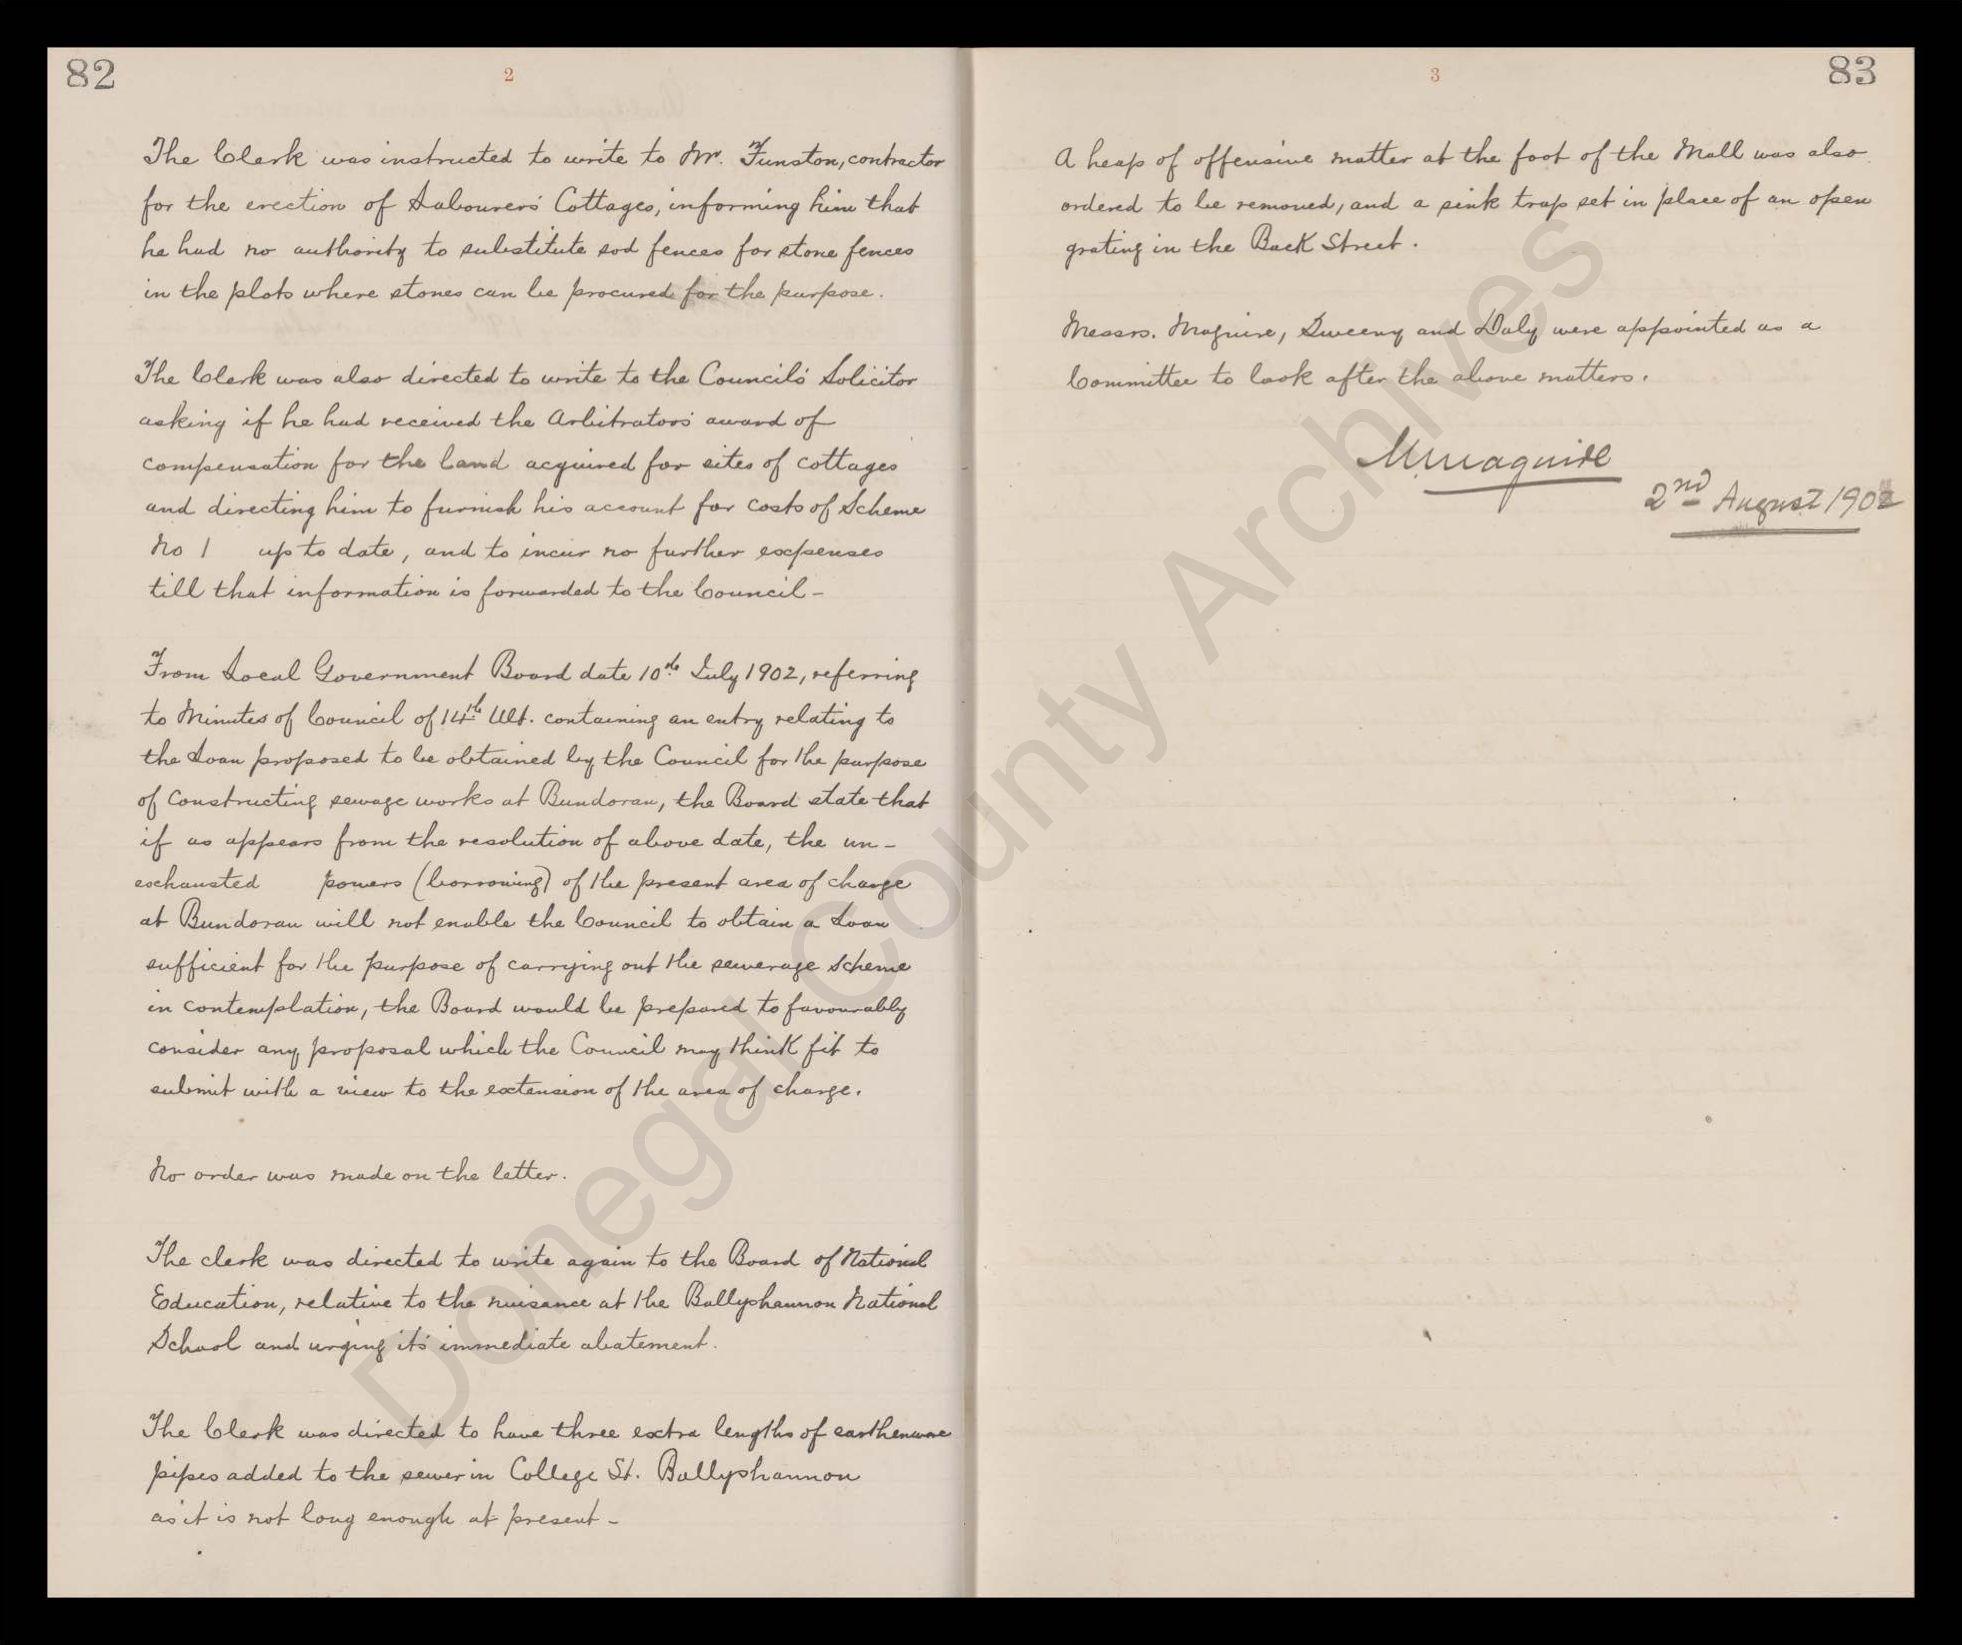 82
2
The Clerk was instructed to write to Mr. Funston, contractor
for the erection of Labourers' Cottages, informing him that
he had no authority to substitute sod fences for stone fences
in the plots where stones can be procured for the purpose.
The Clerk was also directed to write to the Council's Solicitor
asking if he had received the Arbitrators' award of
compensation for the land acquired for sites of cottages
and directing him to furnish his account for costs of Scheme
No 1 up to date, and to incur no further expenses
till that information is forwarded to the Council –
From Local Government Board date 10th July 1902, referring
to Minutes of Council of 14th Ult. containing an entry relating to
the Loan proposed to be obtained by the Council for the purpose
of Constructing sewage works at Bundoran, the Board state that
if as appears from the resolution of above date, the un-
exhausted powers (borrowing) of the present area of charge
at Bundoran will not enable the Council to obtain a Loan
sufficient for the purpose of carrying out the sewerage Scheme
in contemplation, the Board would be prepared to favourably
consider any proposal which the Council may think fit to
submit with a view to the extension of the area of charge.
No order was made on the letter.
The clerk was directed to write again to the Board of National
Education, relative to the nuisance at the Ballyshannon National
School and urging it's immediate abatement.
The Clerk was directed to have three extra lengths of earthenware
pipes added to the sewer in College St. Ballyshannon
as it is not long enough at present –
83
3
A heap of offensive matter at the foot of the Mall was also
ordered to be removed, and a sink trap set in place of an open
grating in the Back Street.
Messrs. Maguire, Sweeny and Daly were appointed as a
Committee to look after the above matters.
M Maguire
2nd August 1902
Donegal County Archives